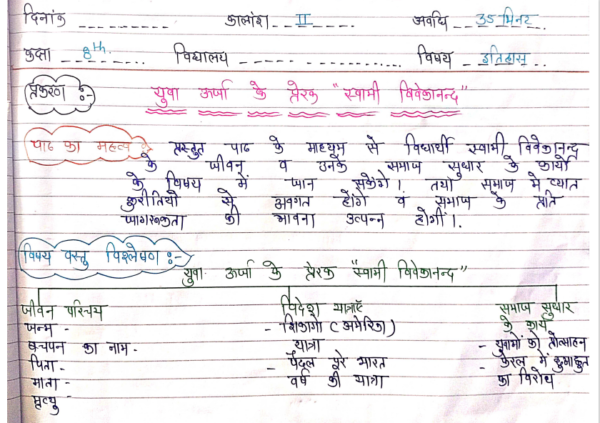 दिनांक कालांश II अवधि 35 मिनट
कक्षा 8th विद्यालय विषय इतिहास
प्रकरण :- युवा ऊर्जा के प्रेरक "स्वामी विवेकानन्द"
पाठ का महत्व :- प्रस्तुत पाठ के माध्यम से विद्यार्थी स्वामी विवेकानन्द
के जीवन व उनके समाज सुधार के कार्यों
के विषय में जान सकेंगे। तथा समाज में व्याप्त
कुरीतियों से अवगत होंगे व समाज के प्रति
जागरूकता की भावना उत्पन्न होगी।
विषय वस्तु विश्लेषण :-
युवा ऊर्जा के प्रेरक "स्वामी विवेकानन्द"
जीवन परिचय विदेश यात्राएँ समाज सुधार
के कार्य
जन्म - - शिकागो (अमेरिका)
बचपन का नाम - यात्रा - युवाओं को प्रोत्साहन
पिता - - पैदल पूरे भारत - केरल में छुआछूत
माता - वर्ष की यात्रा का विरोध
मृत्यु